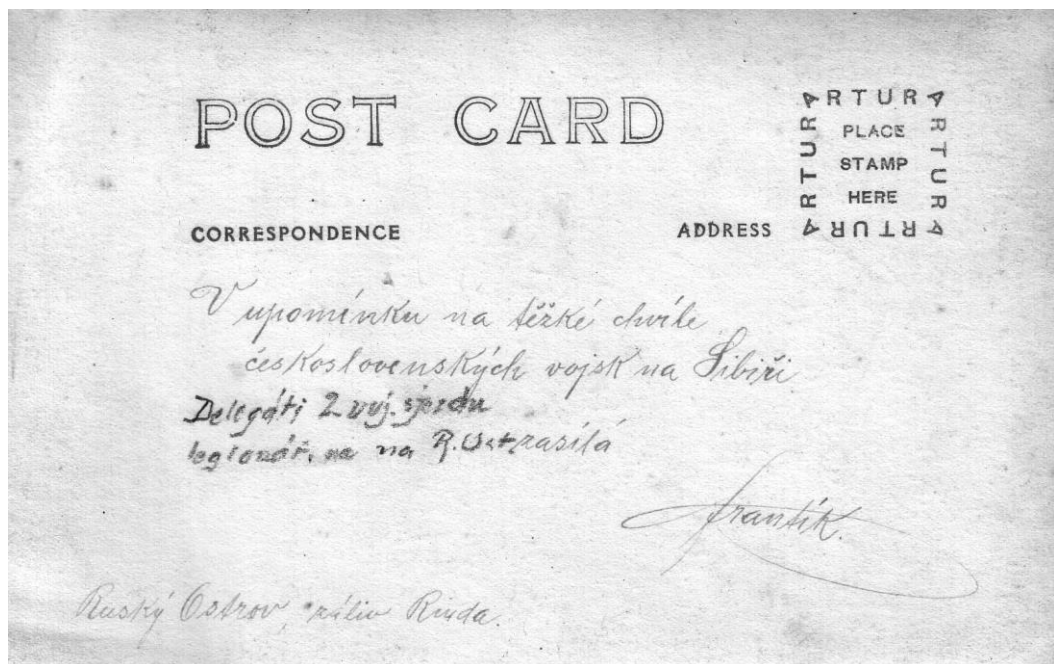 POST CARD
ARTURA
ARTURA
ARTURA
ARTURA
PLACE
STAMP
HERE
CORRESPONDENCE
ADDRESS
V upomínku na těžké chvíle
československých vojsk na Sibiři
Delegáti 2 voj. sjezdu
legionář. na R. Ost. zasílá
Frantík.
Ruský Ostrov, záliv Rinda.